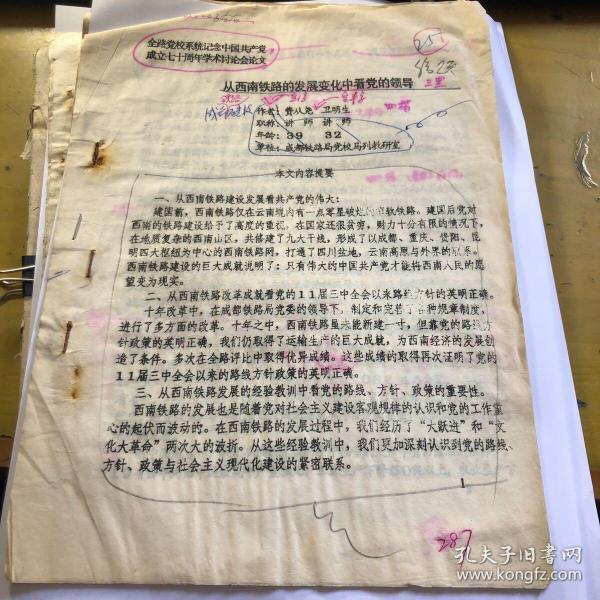 全路党校系统记念中国共产党
成立七十周年学术讨论会论文
25
从西南铁路的发展变化中看党的领导
作者：费从尧 卫明生
职称：讲师 讲师
年龄：39 32
单位：成都铁路局党校马列教研室
本文内容摘要
一、从西南铁路建设发展看共产党的伟大：
建国前，西南铁路仅在云南境内有一点零星破烂的窄轨铁路。建国后党对
西南的铁路建设给予了高度的重视，在国家还很贫穷，财力十分有限的情况下，
在地质复杂的西南山区，共修建了九大干线，形成了以成都、重庆、贵阳、昆
明四大枢纽为中心的西南铁路网，打通了四川盆地，云南高原与外界的联系。
西南铁路建设的巨大成就说明了：只有伟大的中国共产党才能将西南人民的愿
望变为现实。
二、从西南铁路改革成就看党的11届三中全会以来路线方针的英明正确。
十年改革中，在成都铁路局党委的领导下，制定和完善了各种规章制度，
进行了多方面的改革。十年之中，西南铁路虽未能新建一寸，但靠党的路线方
针政策的英明正确，我们仍取得了运输生产的巨大成就，为西南经济的发展创
造了条件。多次在全路评比中取得优异成绩。这些成绩的取得再次证明了党的
11届三中全会以来的路线方针政策的英明正确。
三、从西南铁路发展的经验教训中看党的路线、方针、政策的重要性。
西南铁路的发展也是随着党对社会主义建设客观规律的认识和党的工作重
心的起伏而波动的。在西南铁路的发展过程中，我们经历了“大跃进”和“文
化大革命”两次大的波折。从这些经验教训中，我们更加深刻认识到党的路线、
方针、政策与社会主义现代化建设的紧密联系。
1
287
孔夫子旧书网
www.kongfz.com